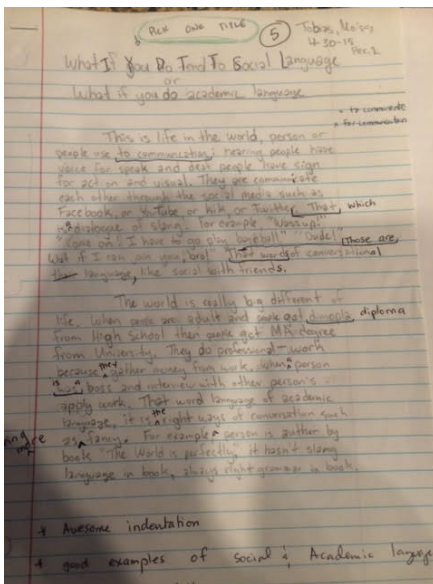 Pick one title
5 Tobias, Moises
4-30-15
Per. 2
What If You Do Tend To Social Language
or
What if you do academic language
* to communicate
* for communication
This is life in the world, person or
people use to communication; hearing people have
voice for speak and deaf people have sign
for action and visual. They are communicate
each other through the social media such as
Facebook, or YouTube or Kik, or Twitter. That, which
is dialogue of slang. For example, "Wassup!"
"Come on! I have to go play baskball" "Oude!" Those are,
"What if I can own you, bro!" That words of conversational
language, like social with friends.
The world is really big different of
life. When people are adult and people get dimopla, diploma
from High School then people get MA degree
from University. They do professional-work
because they gather money from work. When a person
is has a boss and interview with other person's
apply work. That word language of academic
language, it is the right ways of conversation such
as fancy. For example a person is author by
book "The World is perfectly" it hasn't slang
language in book, always right grammar in book.
* Awesome indentation
* good examples of social & Academic language